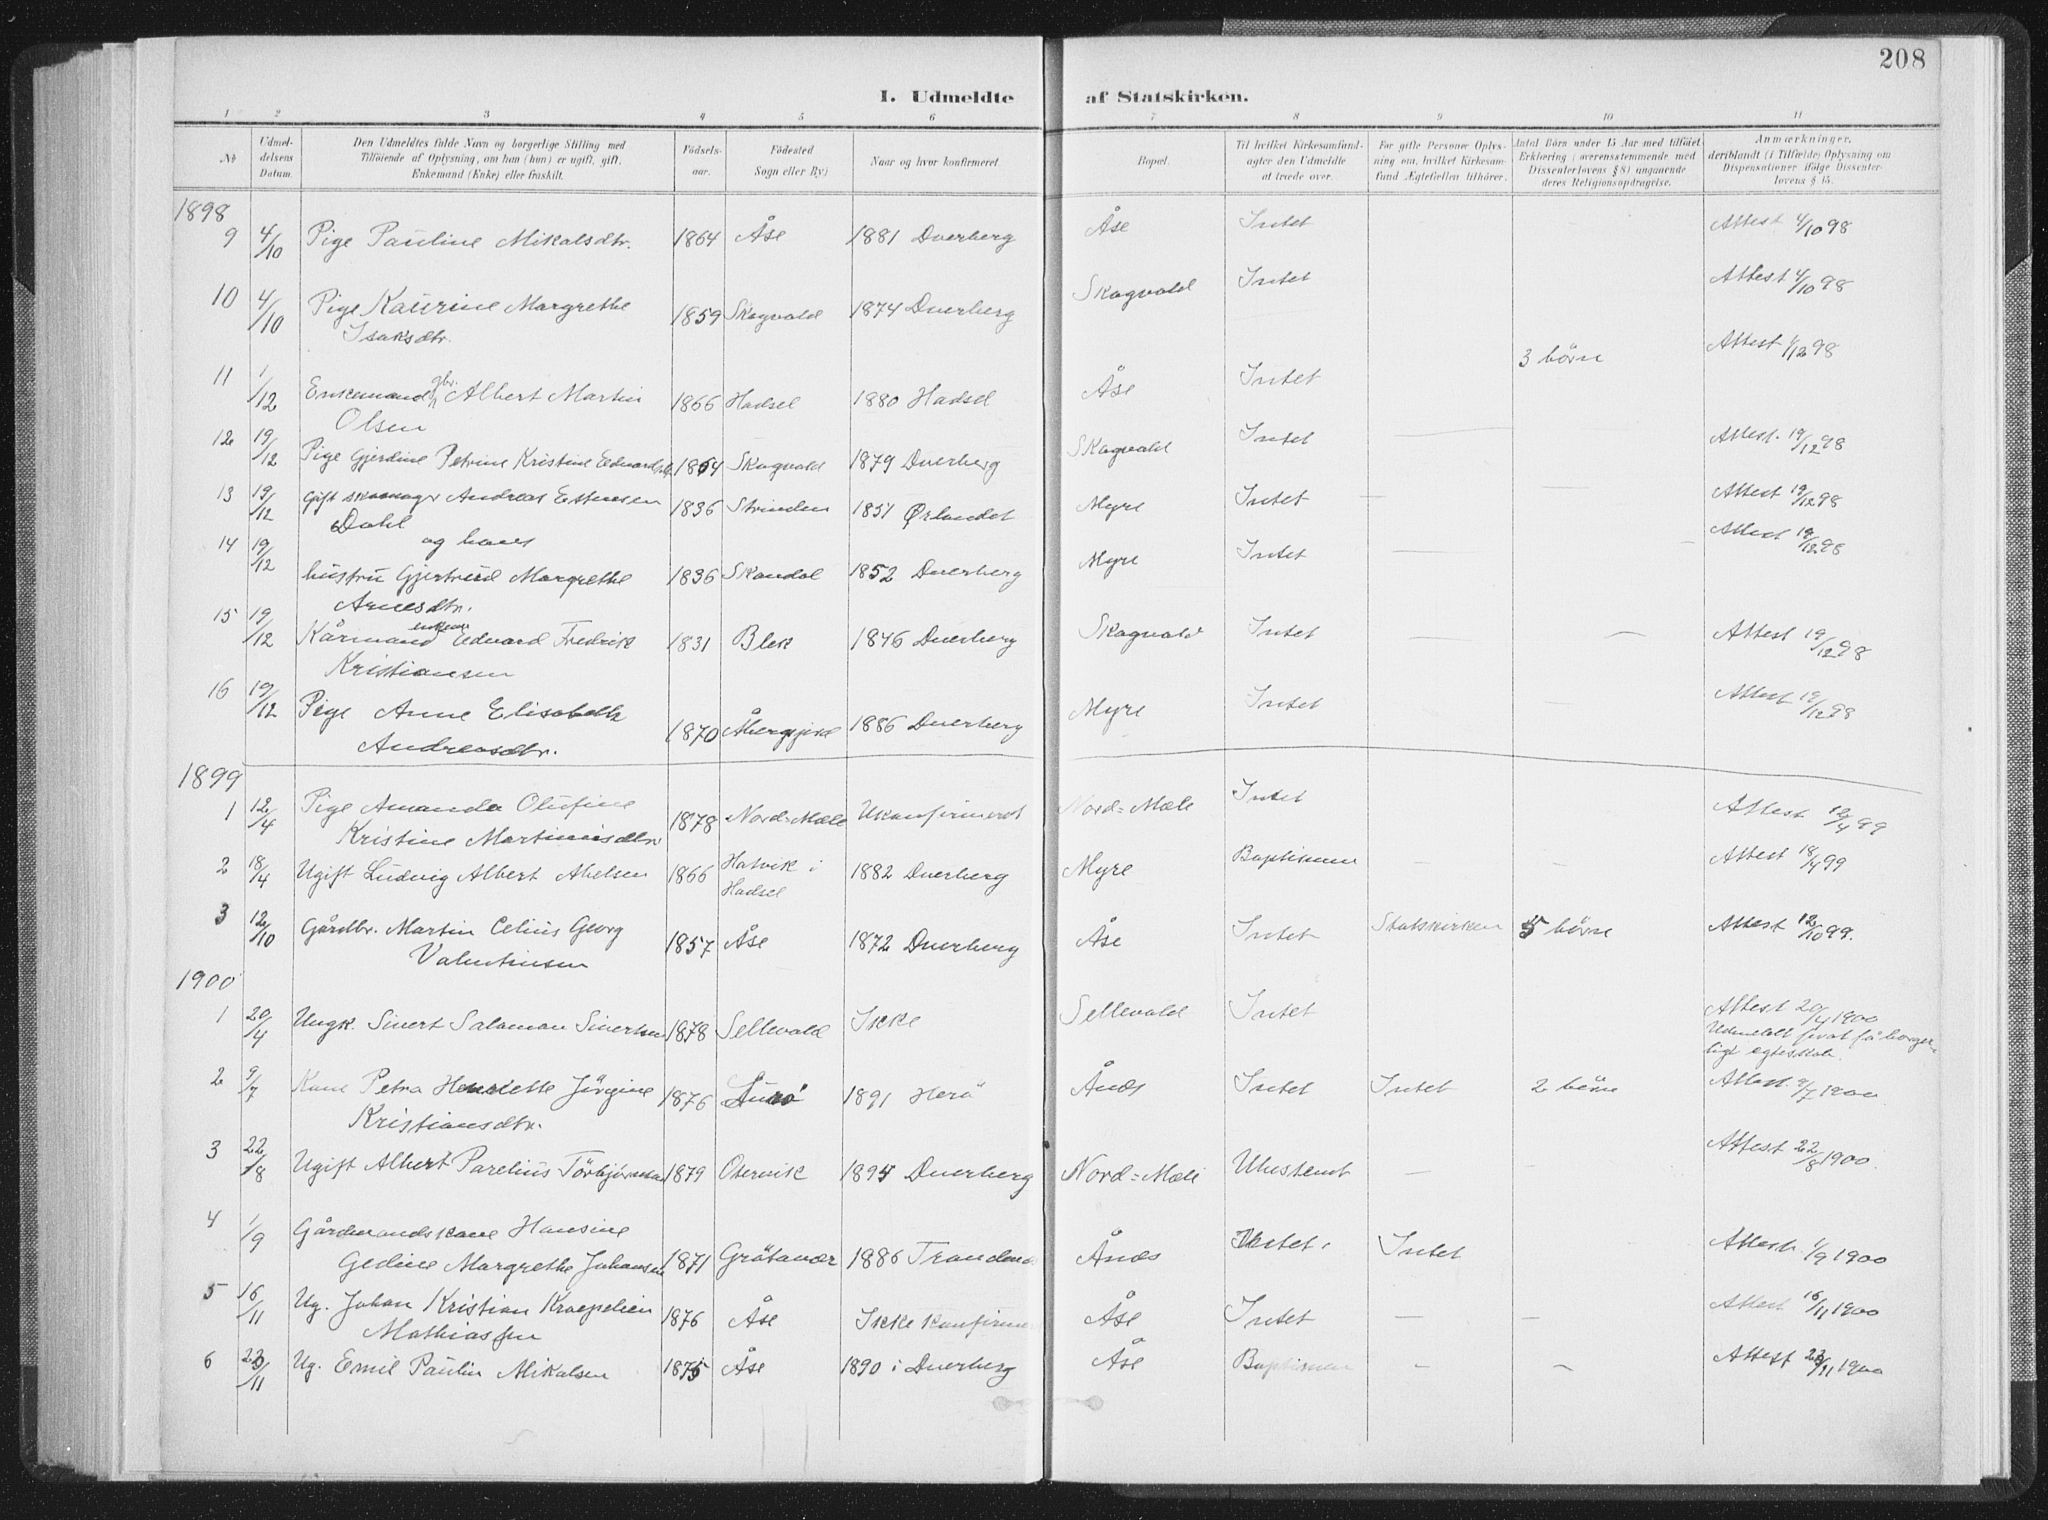 208
I. Udmeldte af Statskirken.
1 2 3 4 5 6 7 8 9 10 11
No
Udmel-
delsens
Datum.
Den Udmeldtes fulde Navn og borgerlige Stilling med
Tilføiende af Oplysning, om han (hun) er ugift, gift,
Enkemand (Enke) eller fraskilt.
Fødsels-
aar.
Fødested
Sogn eller By)
Naar og hvor konfirmeret.
Bopæl.
Til hvilket Kirkesamfund
agter den Udmeldte
at træde over.
For gifte Personer Oplys-
ning om, hvilket Kirkesam-
fund Ægtefællen tilhører.
Antal Børn under 15 Aar med tilføiet
Erklæring (overensstemmende med
Dissenterlovens § 8) angaaende
deres Religionsopdragelse.
Anmærkninger,
deriblandt (i Tilfælde) Oplysning om
Dispensationer ifølge Dissenter-
lovens § 15.
1898
9 4/10 Pige Pauline Mikalsdtr. 1864 Åse 1881 Dverberg Åse Intet Attest 4/10 98
10 4/10 Pige Kaurine Margrethe 1859 Skogvold 1874 Dverberg Skogvold Intet Attest 4/10 98
Isaksdtr.
11 1/12 Enkemand gbr. Albert Martin 1866 Hadsel 1880 Hadsel Åse Intet 3 börn Attest 1/12 98
Olsen
12 19/12 Pige Gjerdine Petrine Kristine Edvardsdtr. 1864 Skogvold 1879 Dverberg Skogvold Intet — — Attest. 19/12 98
13 19/12 Gift skomager Andreas Estensen 1836 Strinden 1851 Ørlandet Myre Intet — — Attest 19/12 98
Dahl
og hans
14 19/12 hustru Gjertrud Margrethe 1836 Skandal 1852 Dverberg Myre Intet — — Attest 19/12 98
Arnesdtr.
15 19/12 Kårmand enkem. Edvard Fredrik 1831 Blek 1846 Dverberg Skogvold Intet — — Attest 19/12 98
Kristiansen
16 19/12 Pige Anne Elisabeth 1870 Åbergsjord 1886 Dverberg Myre Intet Attest 19/12 98
Andreasdtr.
1899
1 12/4 Pige Amanda Olufine 1878 Nord=Mæle Ukonfirmeret Nord=Mæle Intet Attest 12/4 99
Kristine Martinusdtr
2 18/4 Ugift Ludvig Albert Abelsen 1866 Hatvik i 1882 Dverberg Myre Baptismen — — Attest 18/4 99
Hadsel
3 12/10 Gårdbr. Martin Celius Georg 1857 Åse 1872 Dverberg Åse Intet Statskirken 5 börn Attest 12/10 99.
Valentinsen
1900
1 20/4 Ungk. Sivert Salamon Sivertsen 1878 Sellevold Ikke Sellevold Intet Attest 20/4 1900
Udmeldt for at få borger-
ligt egteskab.
2 9/7 Kone Petra Henriette Jörgine 1876 1891 Herö Ånds Intet Intet 2 börn Attest. 9/7 1900
Kristiansdtr.
3 22/8 Ugift Albert Parelius Torbjörnsen 1879 Oternik 1895 Dverberg Nord=Mæle Ubestemt — — Attest 22/8 1900.
4 1/9 Gårdmandskone Hansine
Gedine Margrethe Johansen 1871 Grötavær 1886 Tranden Ånds Intet. Intet Attest. 1/9 1900
5 16/11 Ug. Johan Kristian Kraepelien 1876 Åse Ikke konfirme Åse Intet — — Attest 16/11 1900
Mathiassen
6 23/11 Ug. Emil Paulin Mikalsen 1875 Åse 1890 i Dverberg Åse Baptismen — — Attest 23/11 1900